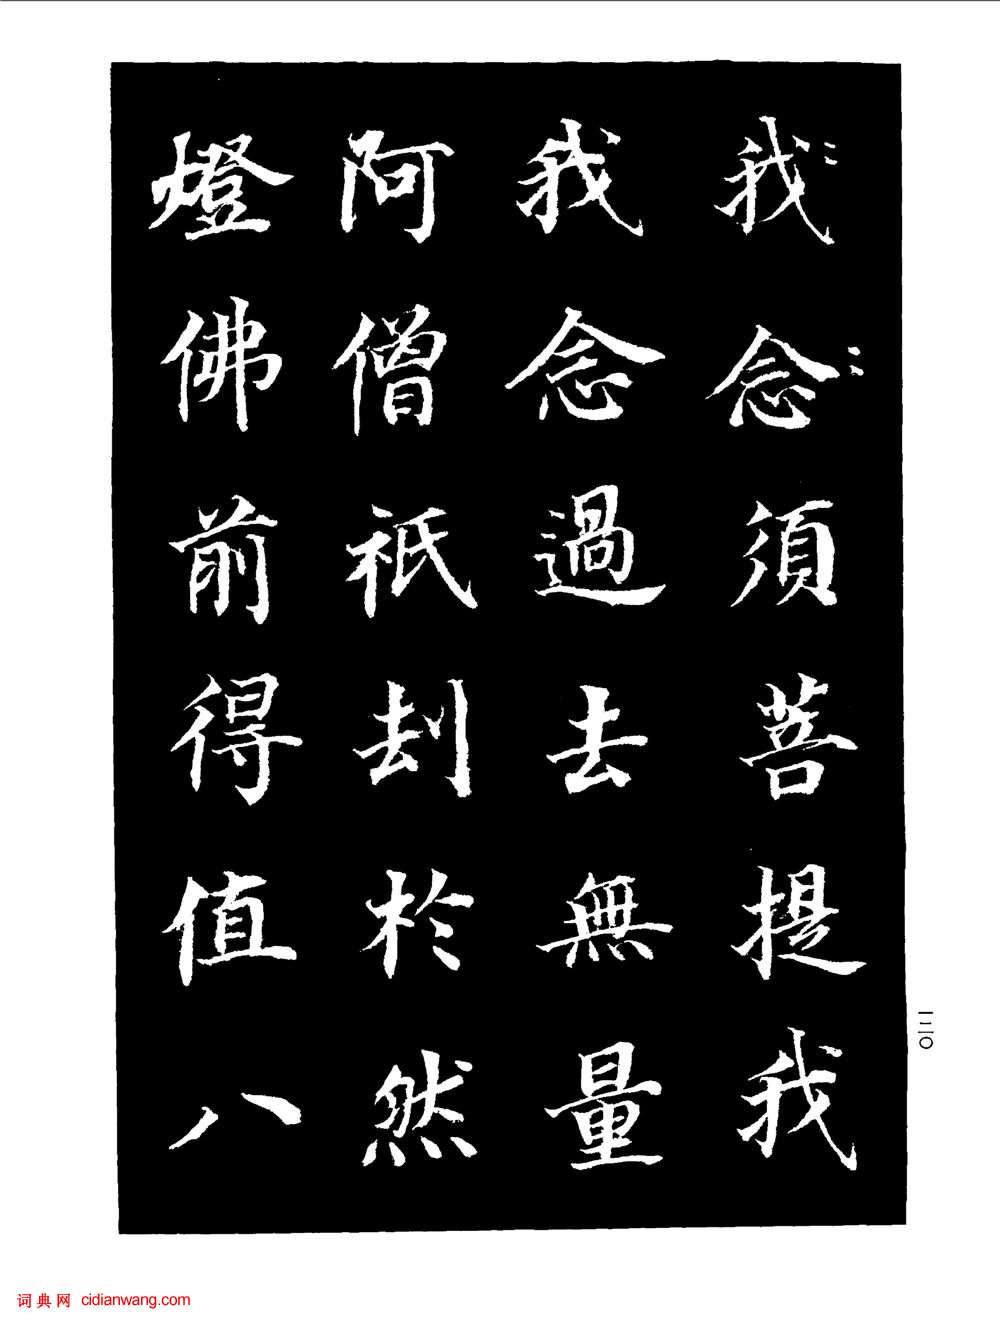 我念須菩提我
我念過去無量
阿僧祇刦於然
燈佛前得值八
一三〇
词典网 cidianwang.com